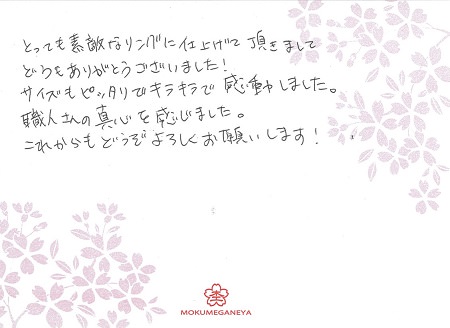 とっても素敵なリングに仕上げて頂きまして
どうもありがとうございました!
サイズもピッタリでキラキラで感動しました。
職人さんの真心を感じました。
これからもどうぞよろしくお願いします!
MOKUMEGANEYA